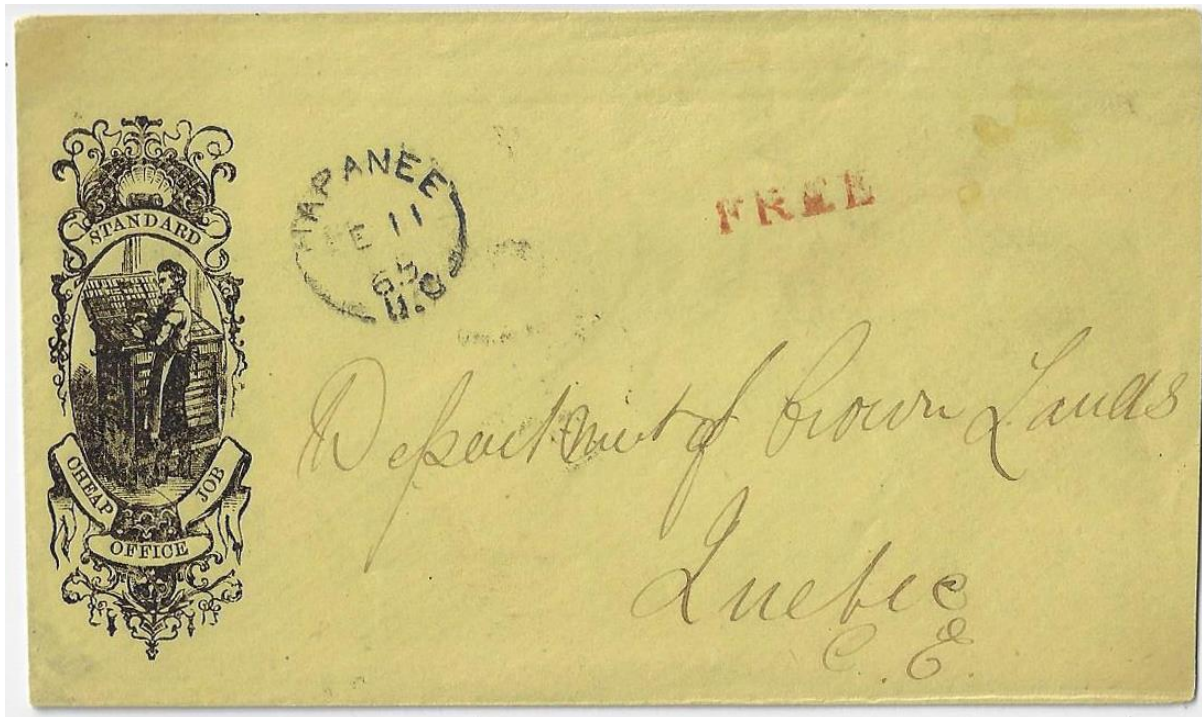 STANDARD
CHEAP JOB
OFFICE
NAPANEE
FE 11
65
U.C
FREE
Department of Crown Lands
Quebec
C.E.